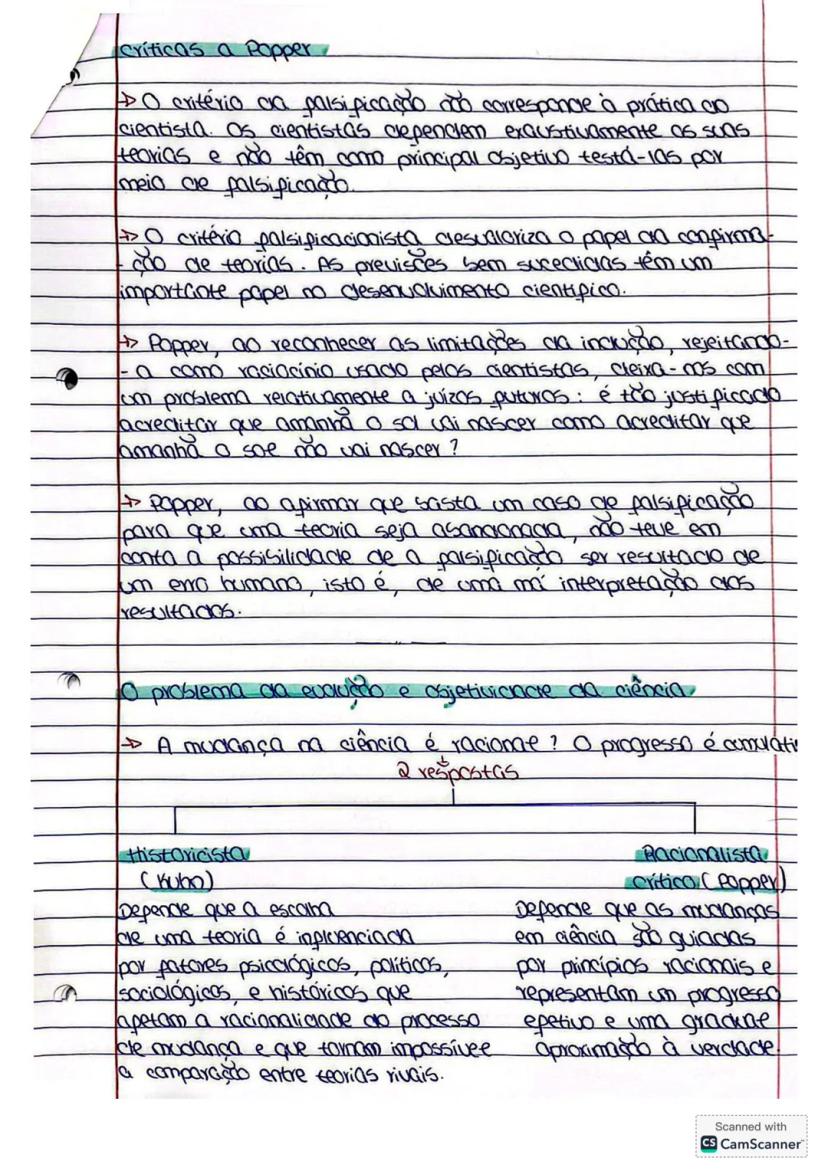 críticas a Popper
→ O critério da falsificação não corresponde à prática do
cientista. Os cientistas defendem exaustivamente as suas
teorias e não têm como principal objetivo testá-las por
meio de falsificação.
→ O critério falsificacionista desvaloriza o papel da confirma-
- ção de teorias. As previsões bem sucedidas têm um
importante papel no desenvolvimento científico.
→ Popper, ao reconhecer as limitações da indução, rejeitando-
- a como raciocínio usado pelos cientistas, deixa-nos com
um problema relativamente a juízos futuros: é tão justificado
acreditar que amanhã o sol vai nascer como acreditar que
amanhã o sol não vai nascer?
→ Popper, ao afirmar que basta um caso de falsificação
para que uma teoria seja abandonada, não teve em
conta a possibilidade de a falsificação ser resultado de
um erro humano, isto é, de uma má interpretação dos
resultados.
O problema da evolução e objetividade da ciência
→ A mudança na ciência é racional? O progresso é cumulati
2 respostas
Historicista
(Kuhn)
Defende que a escolha
de uma teoria é influenciada
por fatores psicológicos, políticos,
sociológicos, e históricos que
afetam a racionalidade do processo
de mudança e que tornam impossível
a comparação entre teorias rivais.
Racionalista
crítico (Popper)
Defende que as mudanças
em ciência são guiadas
por princípios racionais e
representam um progresso
efetivo e uma gradual
aproximação à verdade.
Scanned with
CS CamScanner